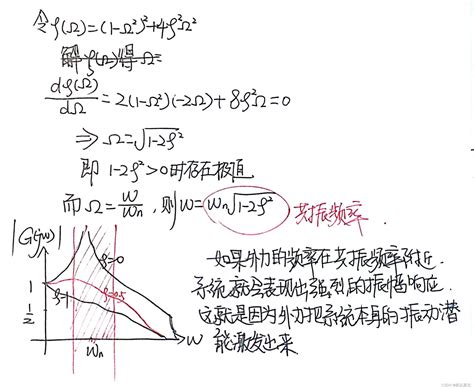 令ρ(Ω)=(1-Ω²)²+4ρ²Ω²
解ρ(Ω)得Ω=
dρ(Ω)/dΩ=2(1-Ω²)(-2Ω)+8ρ²Ω=0
⇒Ω=√1-2ρ²
即 1-2ρ²>0时存在极值
而Ω=W/Wn,则W=Wn√1-2ρ² 共振频率
|G(jw)|
ρ=0
1
ρ=0.5
ρ=1
1/2
Wn
W
如果外力的频率在共振频率附近.
系统就会表现出强烈的振幅响应.
这就是因为外力把系统本身的振动潜
能激发出来